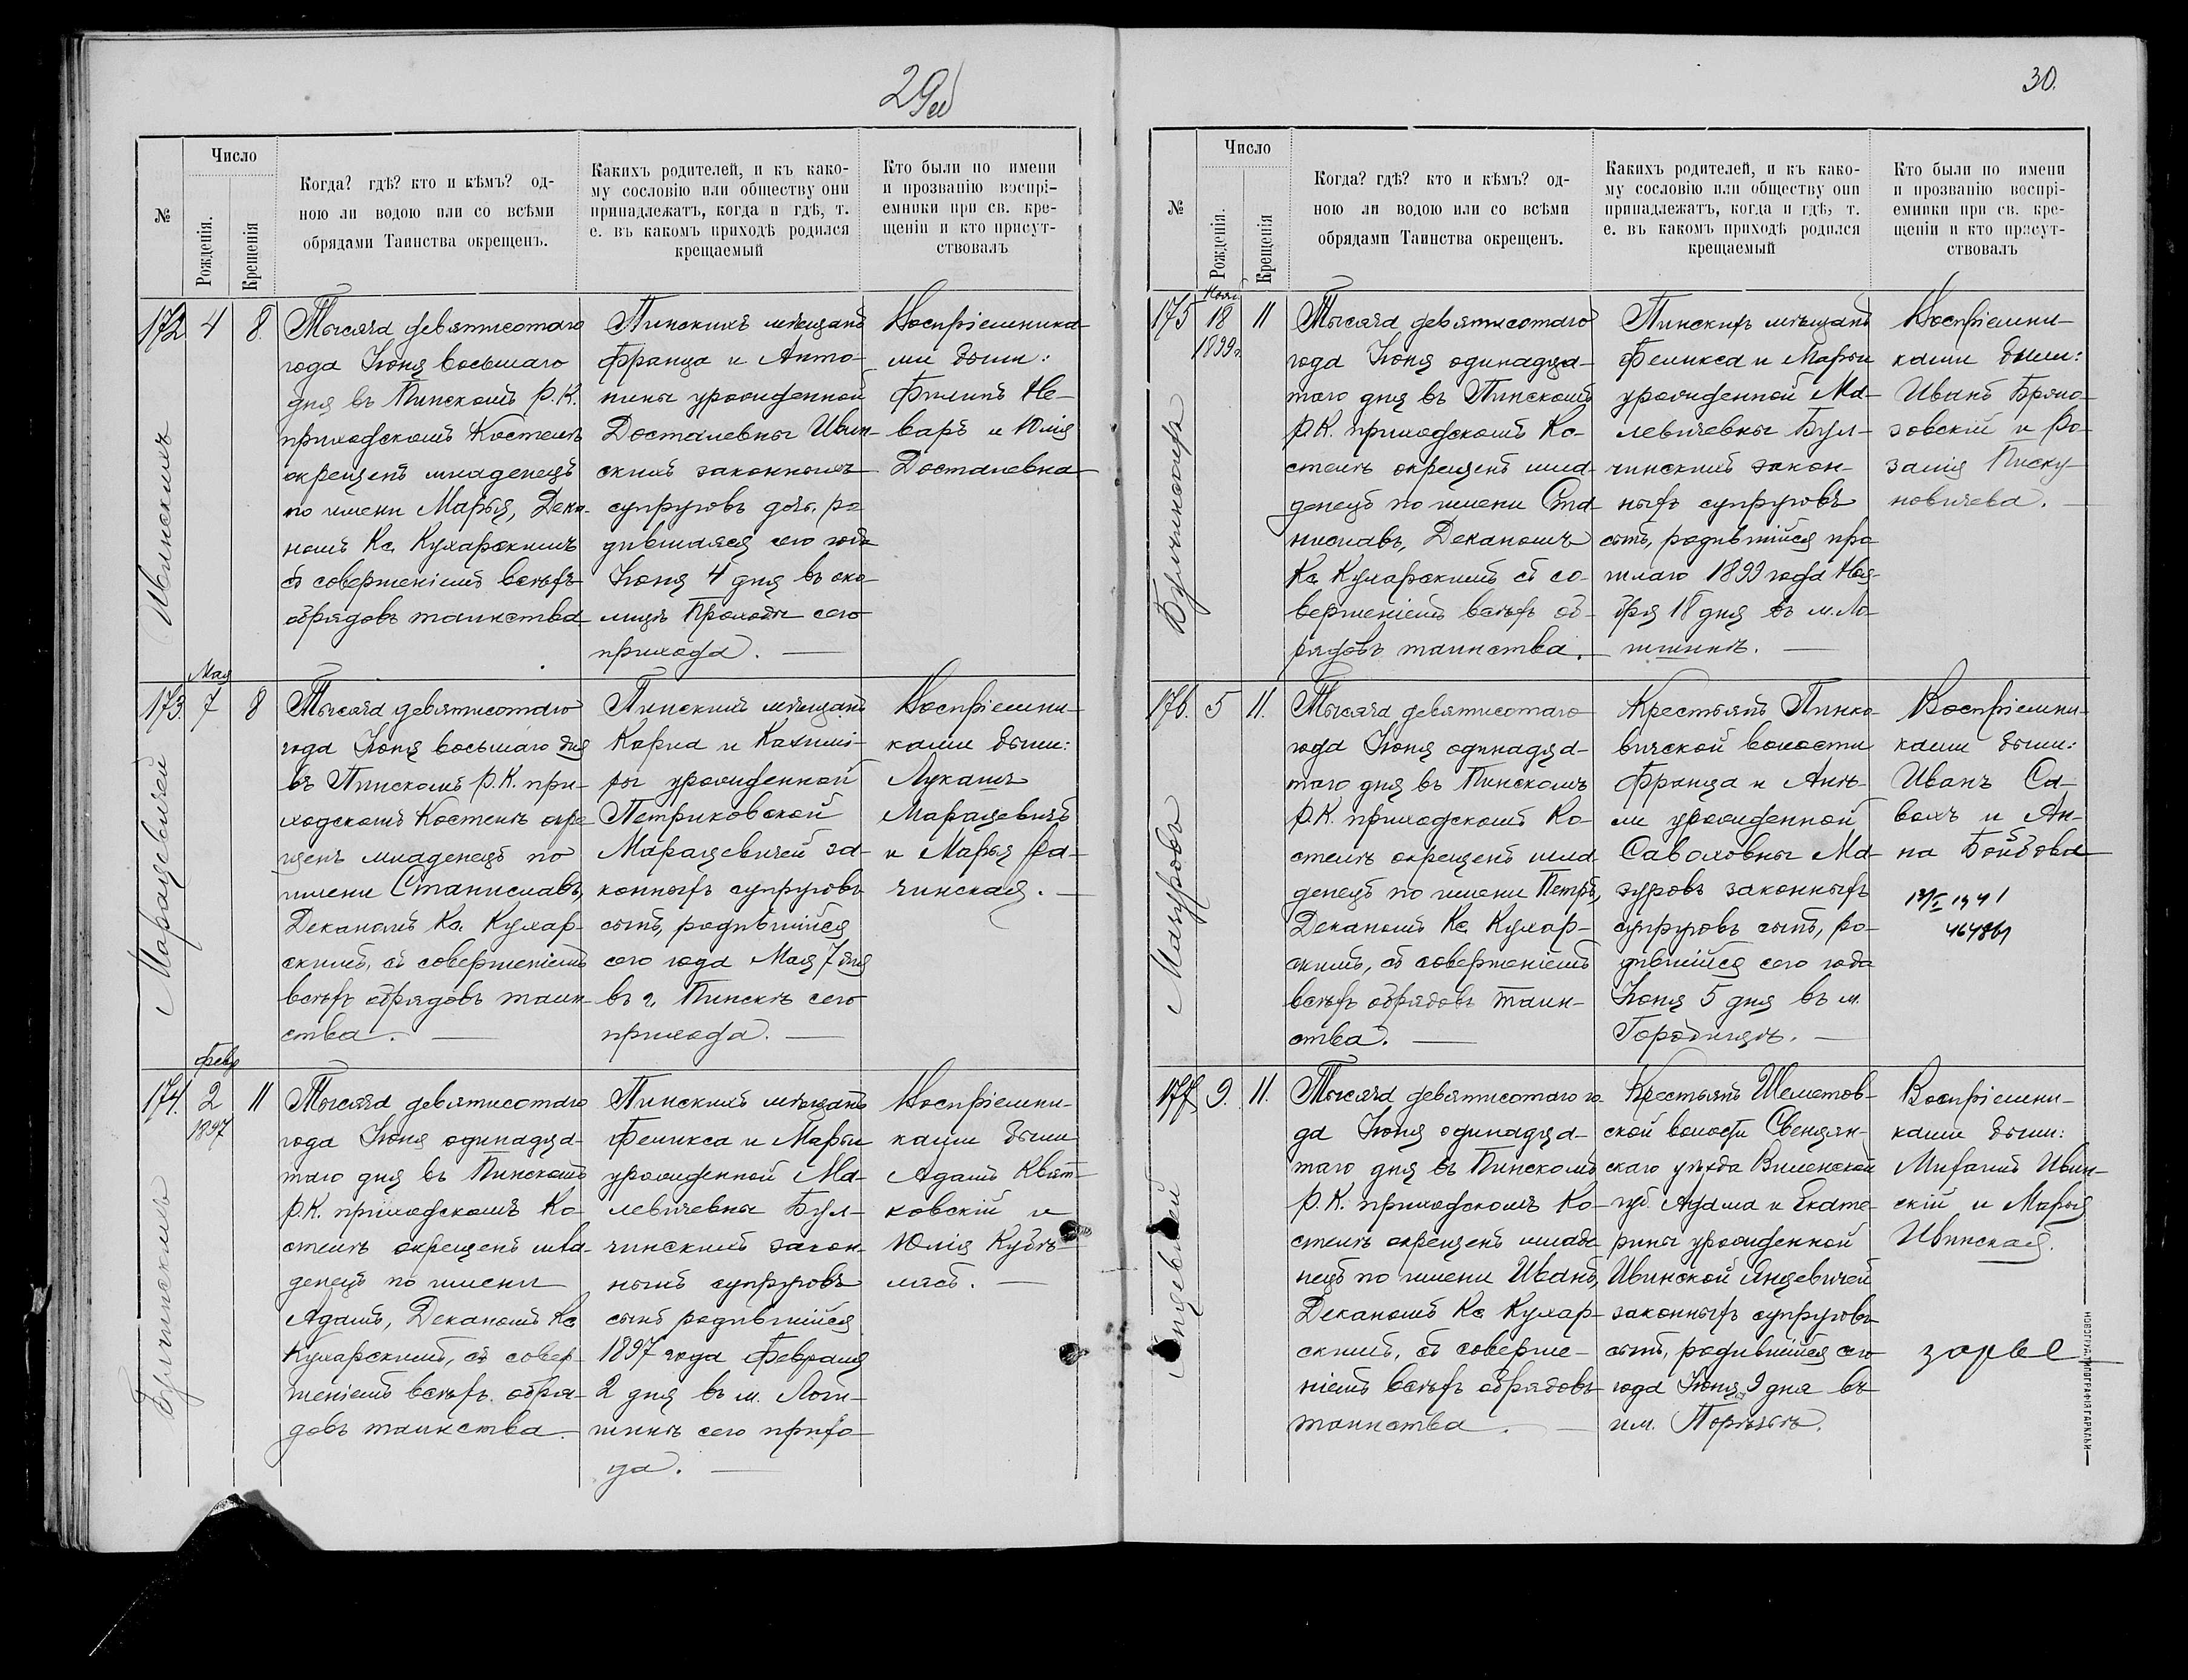 29об
№
Число
Рожденія.
Крещенія
Когда? гдѣ? кто и кѣмъ? од-
ною ли водою или со всѣми
обрядами Таинства окрещенъ.
Какихъ родителей, и къ како-
му сословію или обществу они
принадлежатъ, когда и гдѣ, т.
е. въ какомъ приходѣ родился
крещаемый
Кто были по имени
и прозванію воспрі-
емники при св. кре-
щеніи и кто присут-
ствовалъ
172
4
8.
Ивинскихъ
Тысяча девятисотаго
года Іюня восьмаго
дня въ Пинскомъ Р. К.
приходскомъ Костелѣ
окрещенъ младенецъ
по имени Марья, Дека-
номъ Кс. Кухарскимъ
съ совершеніемъ всѣхъ
обрядовъ таинства
Пинскихъ мѣщанъ
Франца и Анто-
нины урожденной
Досталевны Ивин-
скихъ законныхъ
супруговъ дочь, ро-
дившаяся сего года
Іюня 4 дня въ око-
лицѣ Проходы сего
прихода. —
Воспріемника-
ми были:
Филипъ Не-
варъ и Юлія
Досталевна
173.
Мая
7
8
Марацевичей
Тысяча девятисотаго
года Іюня восьмаго дня
въ Пинскомъ Р. К. при-
ходскомъ Костелѣ окре-
щенъ младенецъ по
имени Станиславъ,
Деканомъ Кс. Кухар-
скимъ, съ совершеніемъ
всѣхъ обрядовъ таин-
ства. —
Пинскихъ мѣщанъ
Карла и Казимі-
ры урожденной
Петриковской
Марацевичей за-
конныхъ супруговъ
сынъ, родившійся
сего года Мая 7 дня
въ г. Пинскѣ сего
прихода. —
Воспріемни-
ками были:
Лукашъ
Марацевичъ
и Марья Ра-
чинская. —
174.
Февр
2
1897
11
Булчинскихъ
Тысяча девятисотаго
года Іюня одинадца-
таго дня въ Пинскомъ
Р. К. приходскомъ Ко-
стелѣ окрещенъ мла-
денецъ по имени
Адамъ, Деканомъ Кс
Кухарскимъ, съ совер-
шеніемъ всѣхъ обря-
довъ таинства.
Пинскихъ мѣщанъ
Феликса и Марьи
урожденной Ма-
левичевны Бул-
чинскихъ закон-
ныхъ супруговъ
сынъ родившійся
1897 года Февраля
2 дня въ м. Логи-
шинѣ сего прихо-
да. —
Воспріемни-
ками были
Адамъ Квят-
ковскій и
Юлія
30.
№
Число
Рожденія.
Крещенія
Когда? гдѣ? кто и кѣмъ? од-
ною ли водою или со всѣми
обрядами Таинства окрещенъ.
Какихъ родителей, и къ како-
му сословію или обществу они
принадлежатъ, когда и гдѣ, т.
е. въ какомъ приходѣ родился
крещаемый
Кто были по имени
и прозванію воспрі-
емники при св. кре-
щеніи и кто присут-
ствовалъ
175
Нояб
18
1899 г.
11
Булчинскихъ
Тысяча девятисотаго
года Іюня одинадца-
таго дня въ Пинскомъ
Р. К. приходскомъ Ко-
стелѣ окрещенъ мла-
денецъ по имени Ста-
ниславъ, Деканомъ
Кс. Кухарскимъ съ со-
вершеніемъ всѣхъ об-
рядовъ таинства. —
Пинскихъ мѣщанъ
Феликса и Марьи
урожденной Ма-
левичевны Бул-
чинскихъ закон-
ныхъ супруговъ
сынъ, родившійся про
шлаго 1899 года Ноя-
бря 18 дня въ м. Ло-
гишинѣ. —
Воспріемни-
ками были:
Иванъ Бржо-
зовскій и Ро-
залія Писку-
новичева. —
176.
5
11.
Мазуровъ
Тысяча девятисотаго
года Іюня одинадца-
таго дня въ Пинскомъ
Р. К. приходскомъ Ко-
стелѣ окрещенъ мла-
денецъ по имени Петръ,
Деканомъ Кс. Кухар-
скимъ, съ совершеніемъ
всѣхъ обрядовъ таин-
ства. —
Крестьянъ Пинко-
вичской волости
Франца и Анѣ-
ли урожденной
Саволовны Ма-
зуровъ законныхъ
супруговъ сынъ, ро-
дившійся сего года
Іюня 5 дня въ м.
Городищѣ. —
Воспріемни-
ками были:
Иванъ Са-
волъ и Ан-
на Бойбова
13/I 1941
177.
9.
11.
Янцевичей
Тысяча девятисотаго го-
да Іюня одинадца-
таго дня въ Пинскомъ
Р. К. приходскомъ Ко-
стелѣ окрещенъ младе-
нецъ по имени Иванъ,
Деканомъ Кс. Кухар-
скимъ, съ соверше-
ніемъ всѣхъ обрядовъ
таинства. —
Крестьянъ Шеметов-
ской волости Свенцян-
скаго уѣзда Виленской
губ. Адама и Екате-
рины урожденной
Ивинской Янцевичей
законныхъ супруговъ
сынъ, родившійся сего
года Іюня 9 дня въ
им. Порѣчьѣ.
Воспріемни-
ками были:
Михаилъ Ивин-
скій и Марья
Ивинская.
НОВОГРУД. ТИПОГРАФІЯ ГАРКАВИ